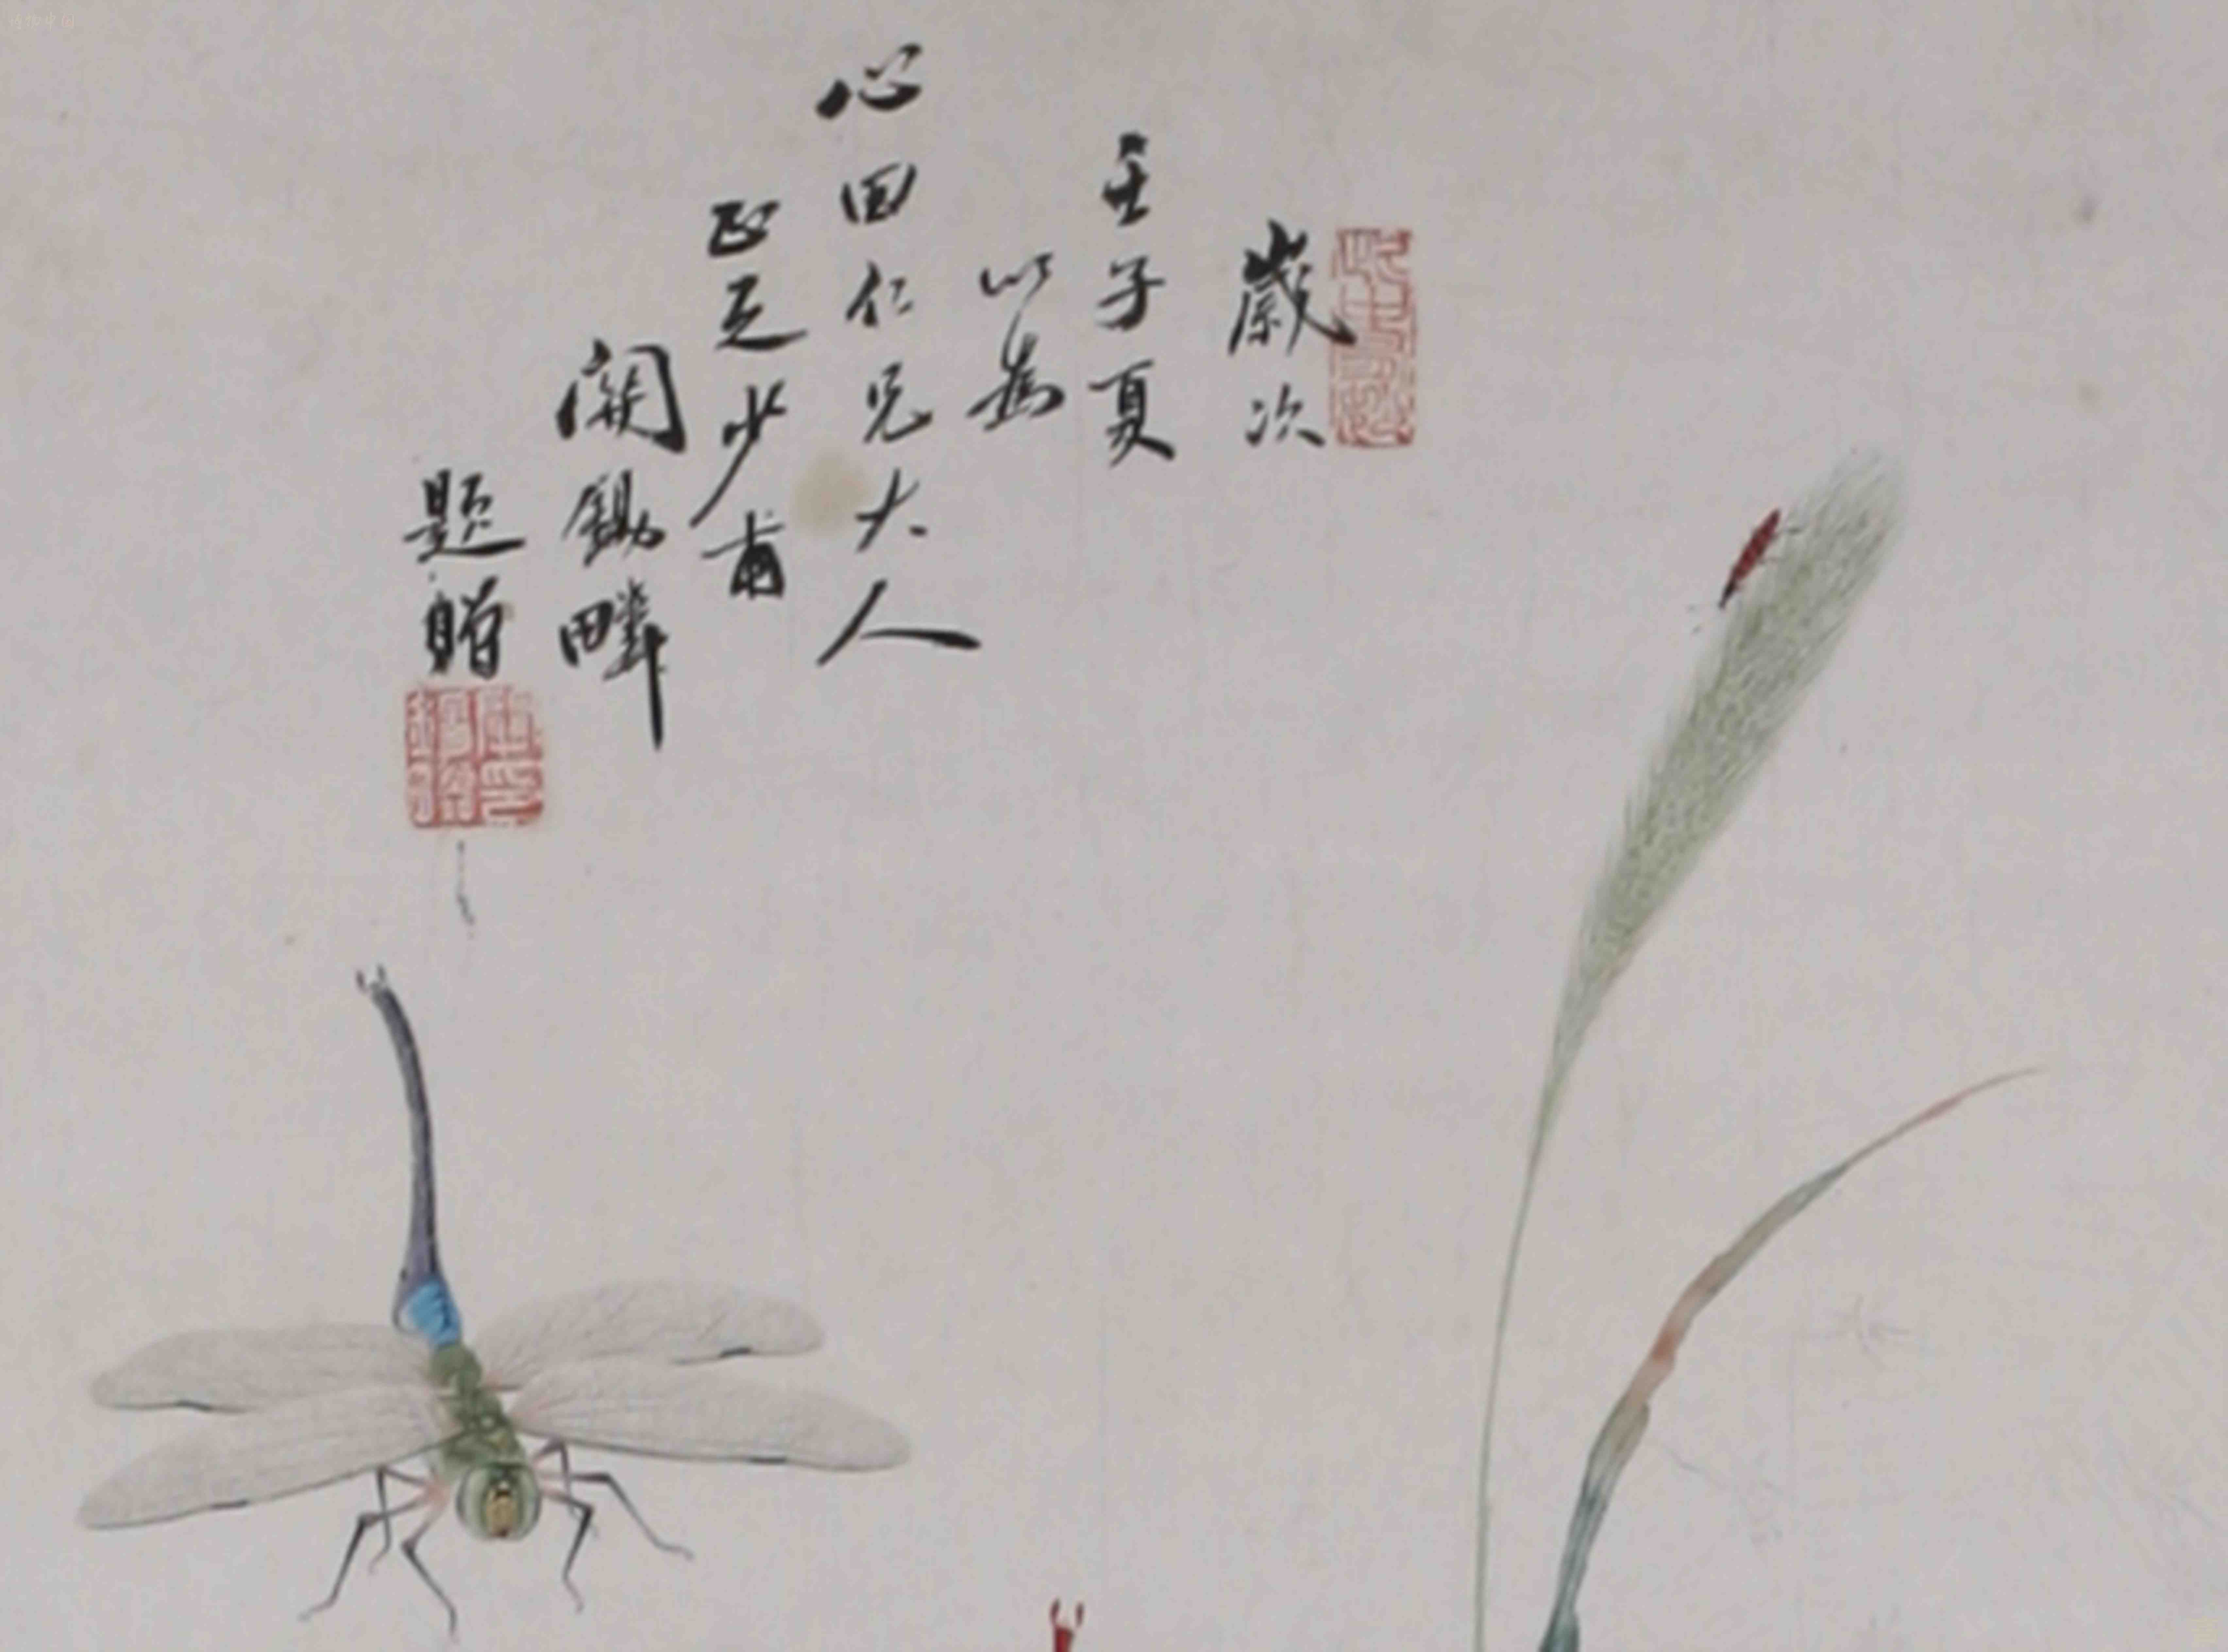 歲次
壬子夏
以為
心田仁兄大人
正之少甫
關鋤畔
題贈